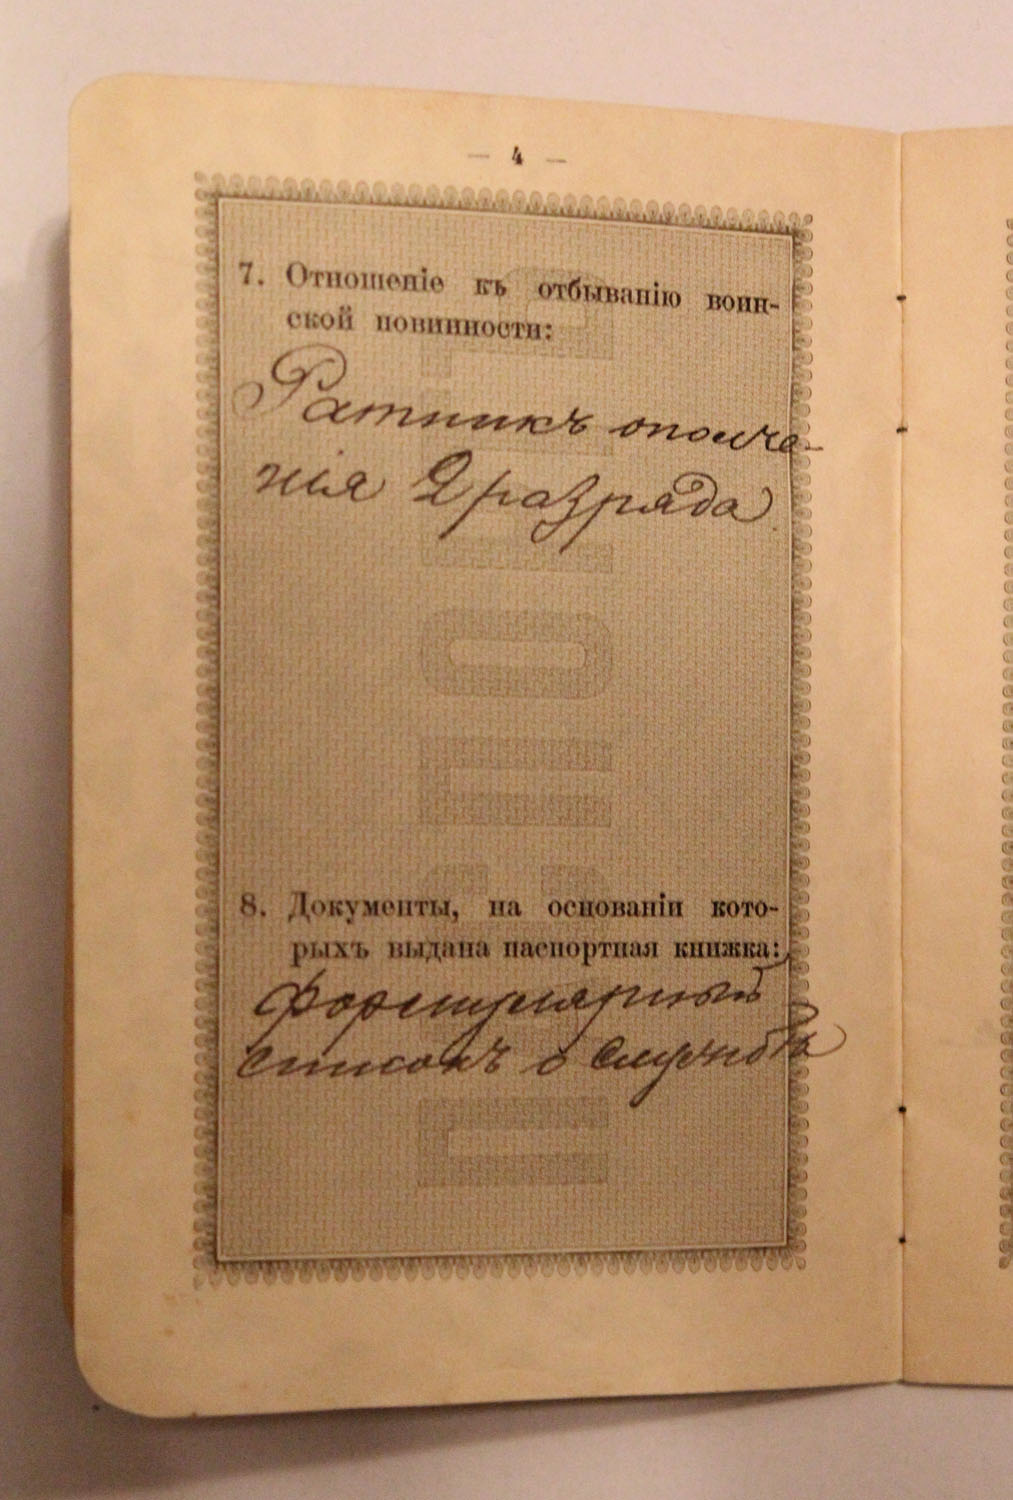 — 4 —
7. Отношеніе къ отбыванію воин-
ской повинности:
Ратникъ ополче-
нія 2 разряда
8. Документы, на основаніи кото-
рыхъ выдана паспортная книжка:
формулярный
списокъ о службѣ